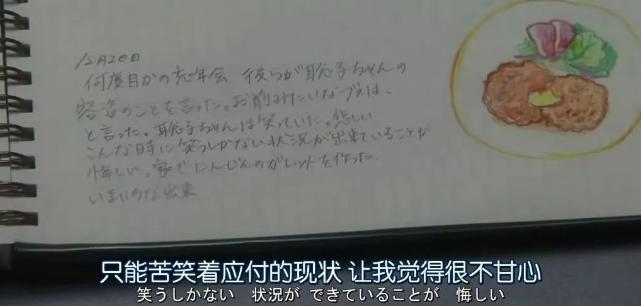 12月20日
何度目かの忘年会 彼らが聡子ちゃんの
容姿のことを言った。お前みたいなブスは、
と言った。聡子ちゃんは笑っていた。悔しい
こんな時に笑うしかない状況が出来ていることが
悔しい。家でにんじんのガレットを作った
いまいちな出来
只能苦笑着应付的现状 让我觉得很不甘心
笑うしかない 状況が できていることが 悔しい